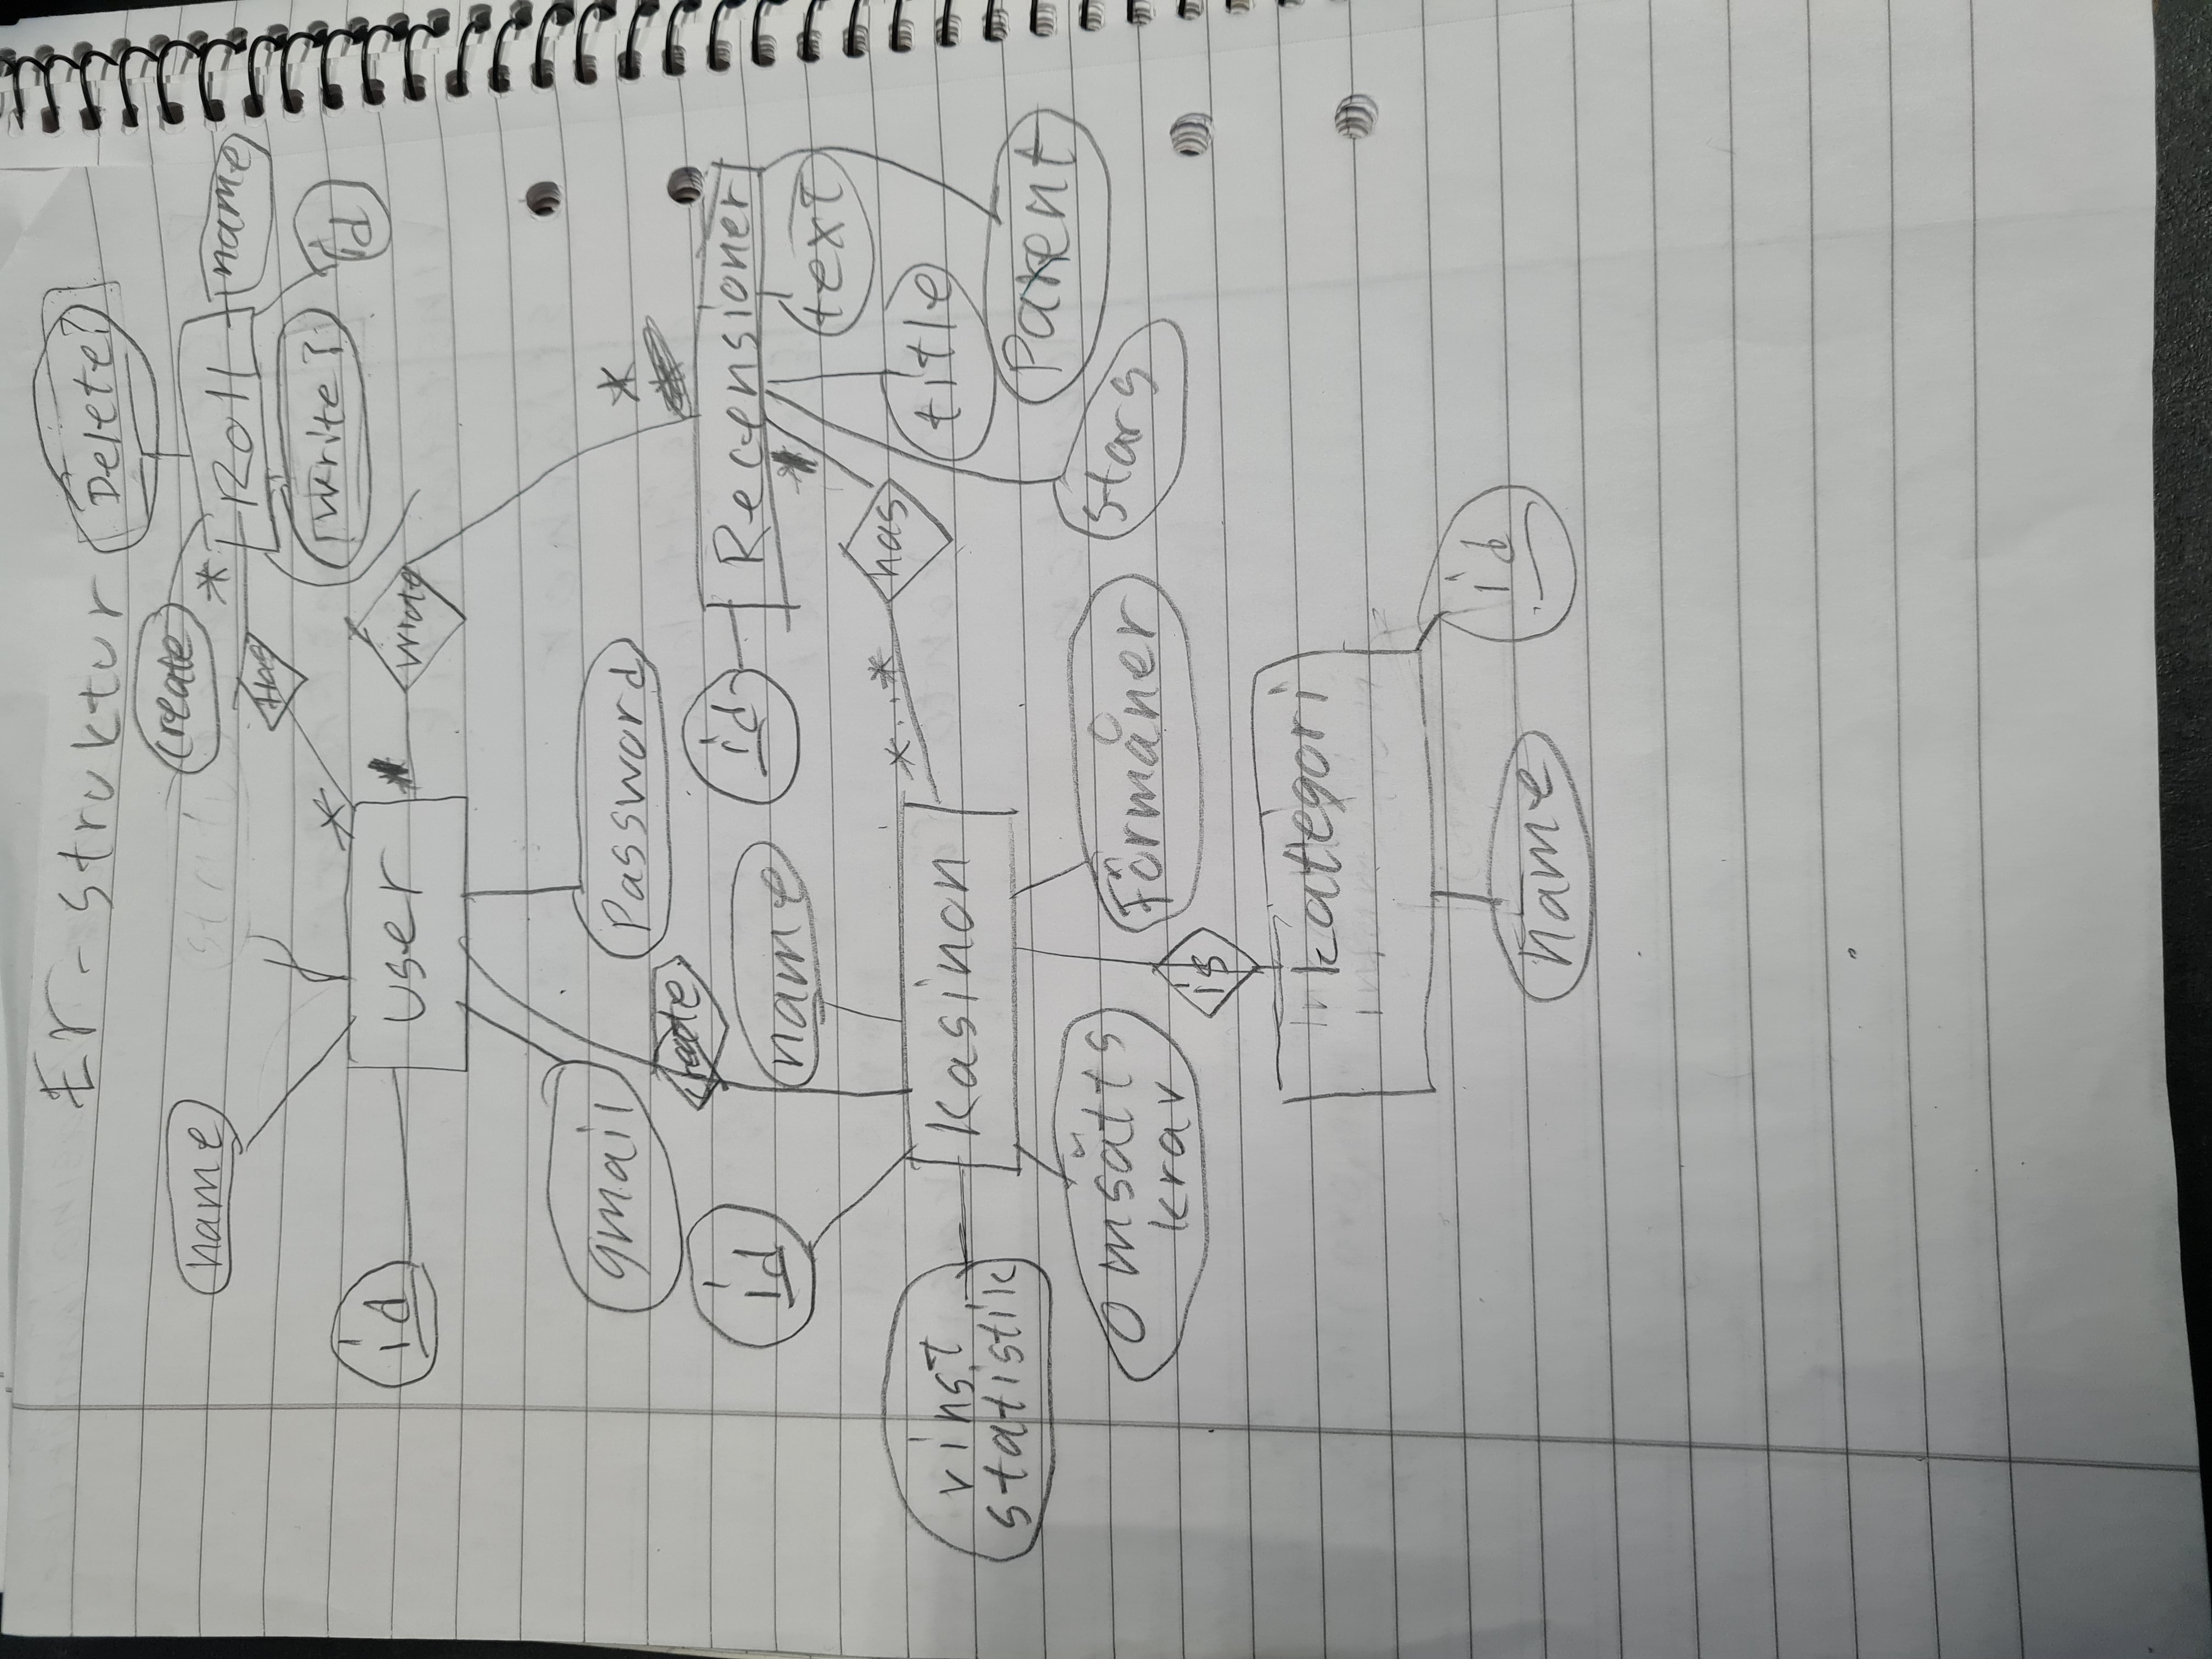 Er - struktur
Delete?
create
name
*
Roll
name
Has
write?
id
*
id
user
*
wrote
gmail
password
*
create
id
name
id
Recensioner
*
text
*..*
has
title
vinst
statistik
kasinon
Parent
omsätts
krav
förmåner
stars
is
kategori
id
name